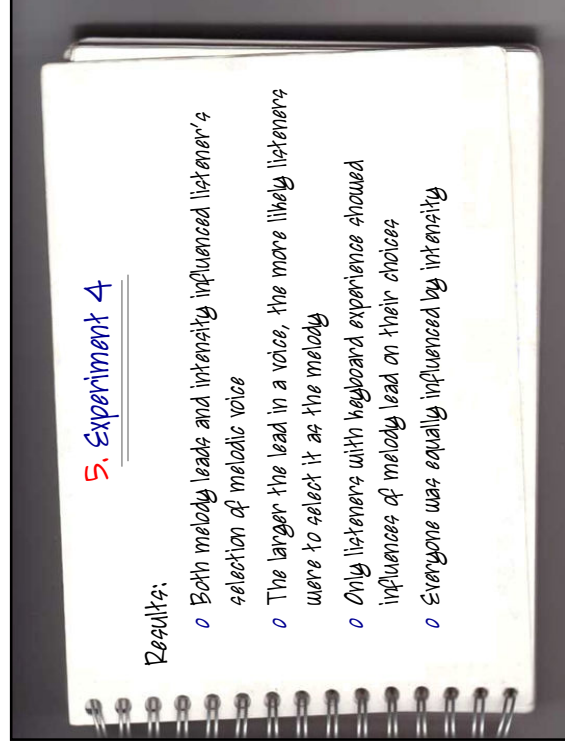 5. Experiment 4
Results:
o Both melody leads and intensity influenced listener's
selection of melodic voice
o The larger the lead in a voice, the more likely listeners
were to select it as the melody
o Only listeners with keyboard experience showed
influences of melody lead on their choices
o Everyone was equally influenced by intensity